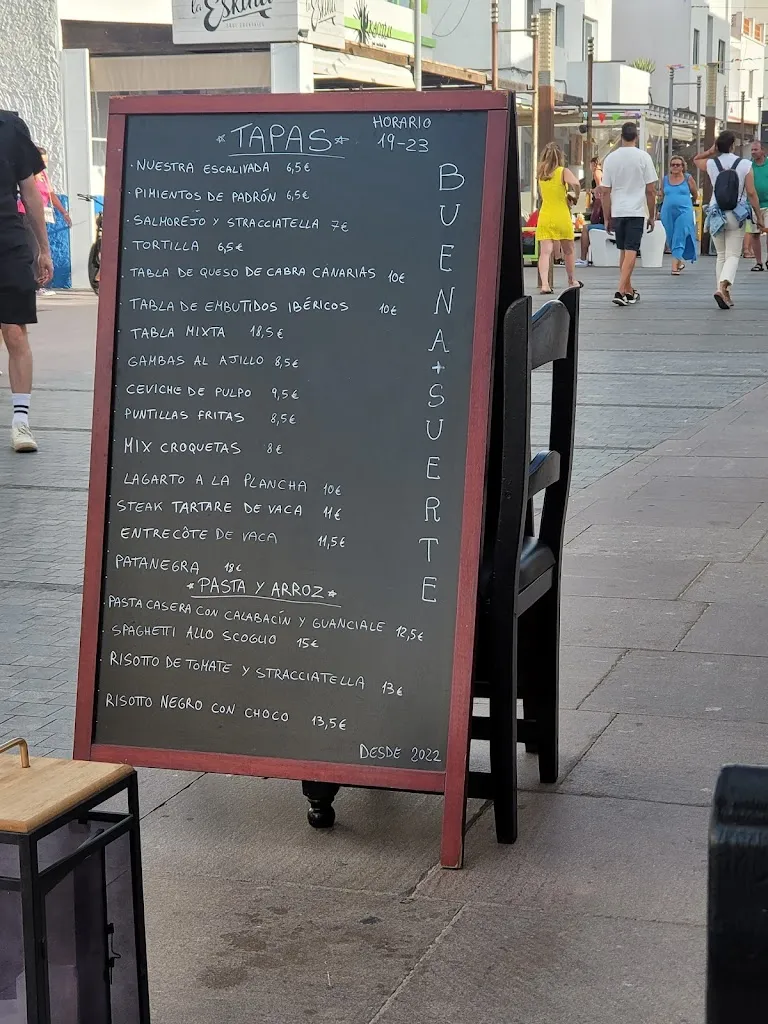 la Eskina
*TAPAS*
HORARIO
19-23
· NUESTRA ESCALIVADA 6,5€
· PIMIENTOS DE PADRÓN 6,5€
· SALMOREJO Y STRACCIATELLA 7€
· TORTILLA 6,5€
· TABLA DE QUESO DE CABRA CANARIAS 10€
· TABLA DE EMBUTIDOS IBÉRICOS 10€
· TABLA MIXTA 18,5€
· GAMBAS AL AJILLO 8,5€
CEVICHE DE PULPO 9,5€
· PUNTILLAS FRITAS 8,5€
· MIX CROQUETAS 8€
LAGARTO A LA PLANCHA 10€
STEAK TARTARE DE VACA 11€
· ENTRECÔTE DE VACA 11,5€
PATANEGRA 18€
*PASTA Y ARROZ*
· PASTA CASERA CON CALABACÍN Y GUANCIALE 12,5€
· SPAGHETTI ALLO SCOGLIO 15€
· RISOTTO DE TOMATE Y STRACCIATELLA 13€
· RISOTTO NEGRO CON CHOCO 13,5€
BUENA+SUERTE
DESDE 2022